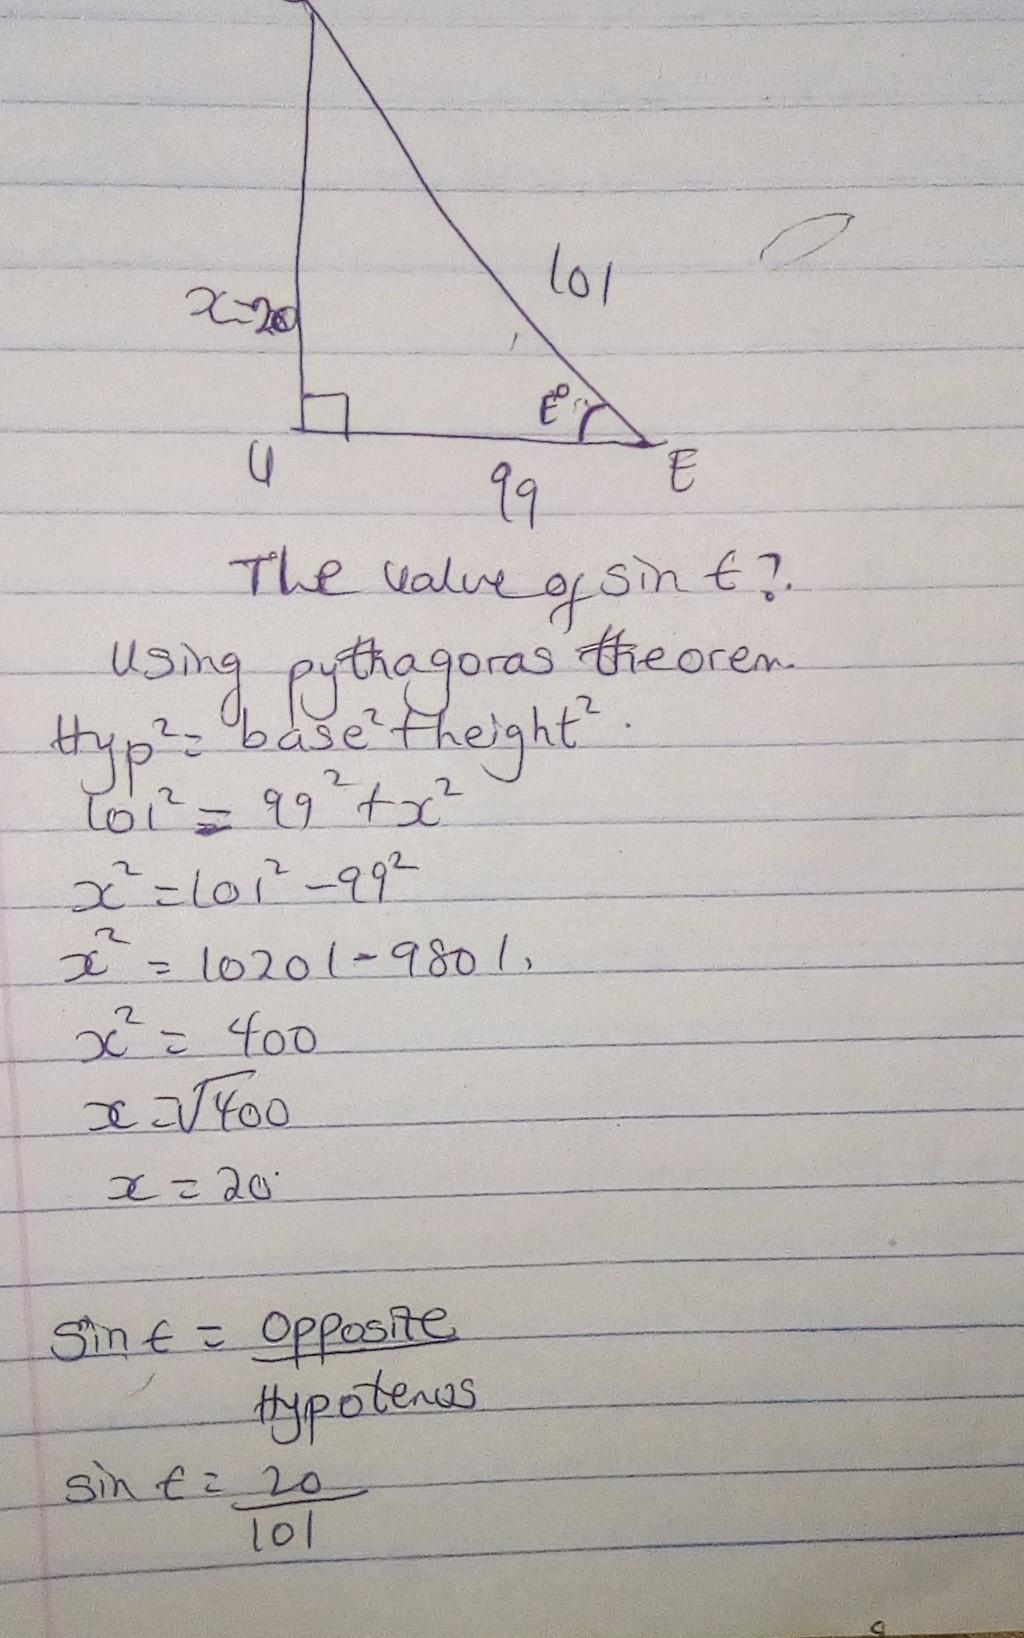 101
x=20
t°
U
E
99
The value of sin t?.
Using pythagoras theorem.
Hyp²= base²+height².
101² = 99²+x²
x²=101²-99²
x² = 10201-9801.
x² = 400
x=√400
x=20
Sin t = Opposite
Hypotenus
sin t = 20
101